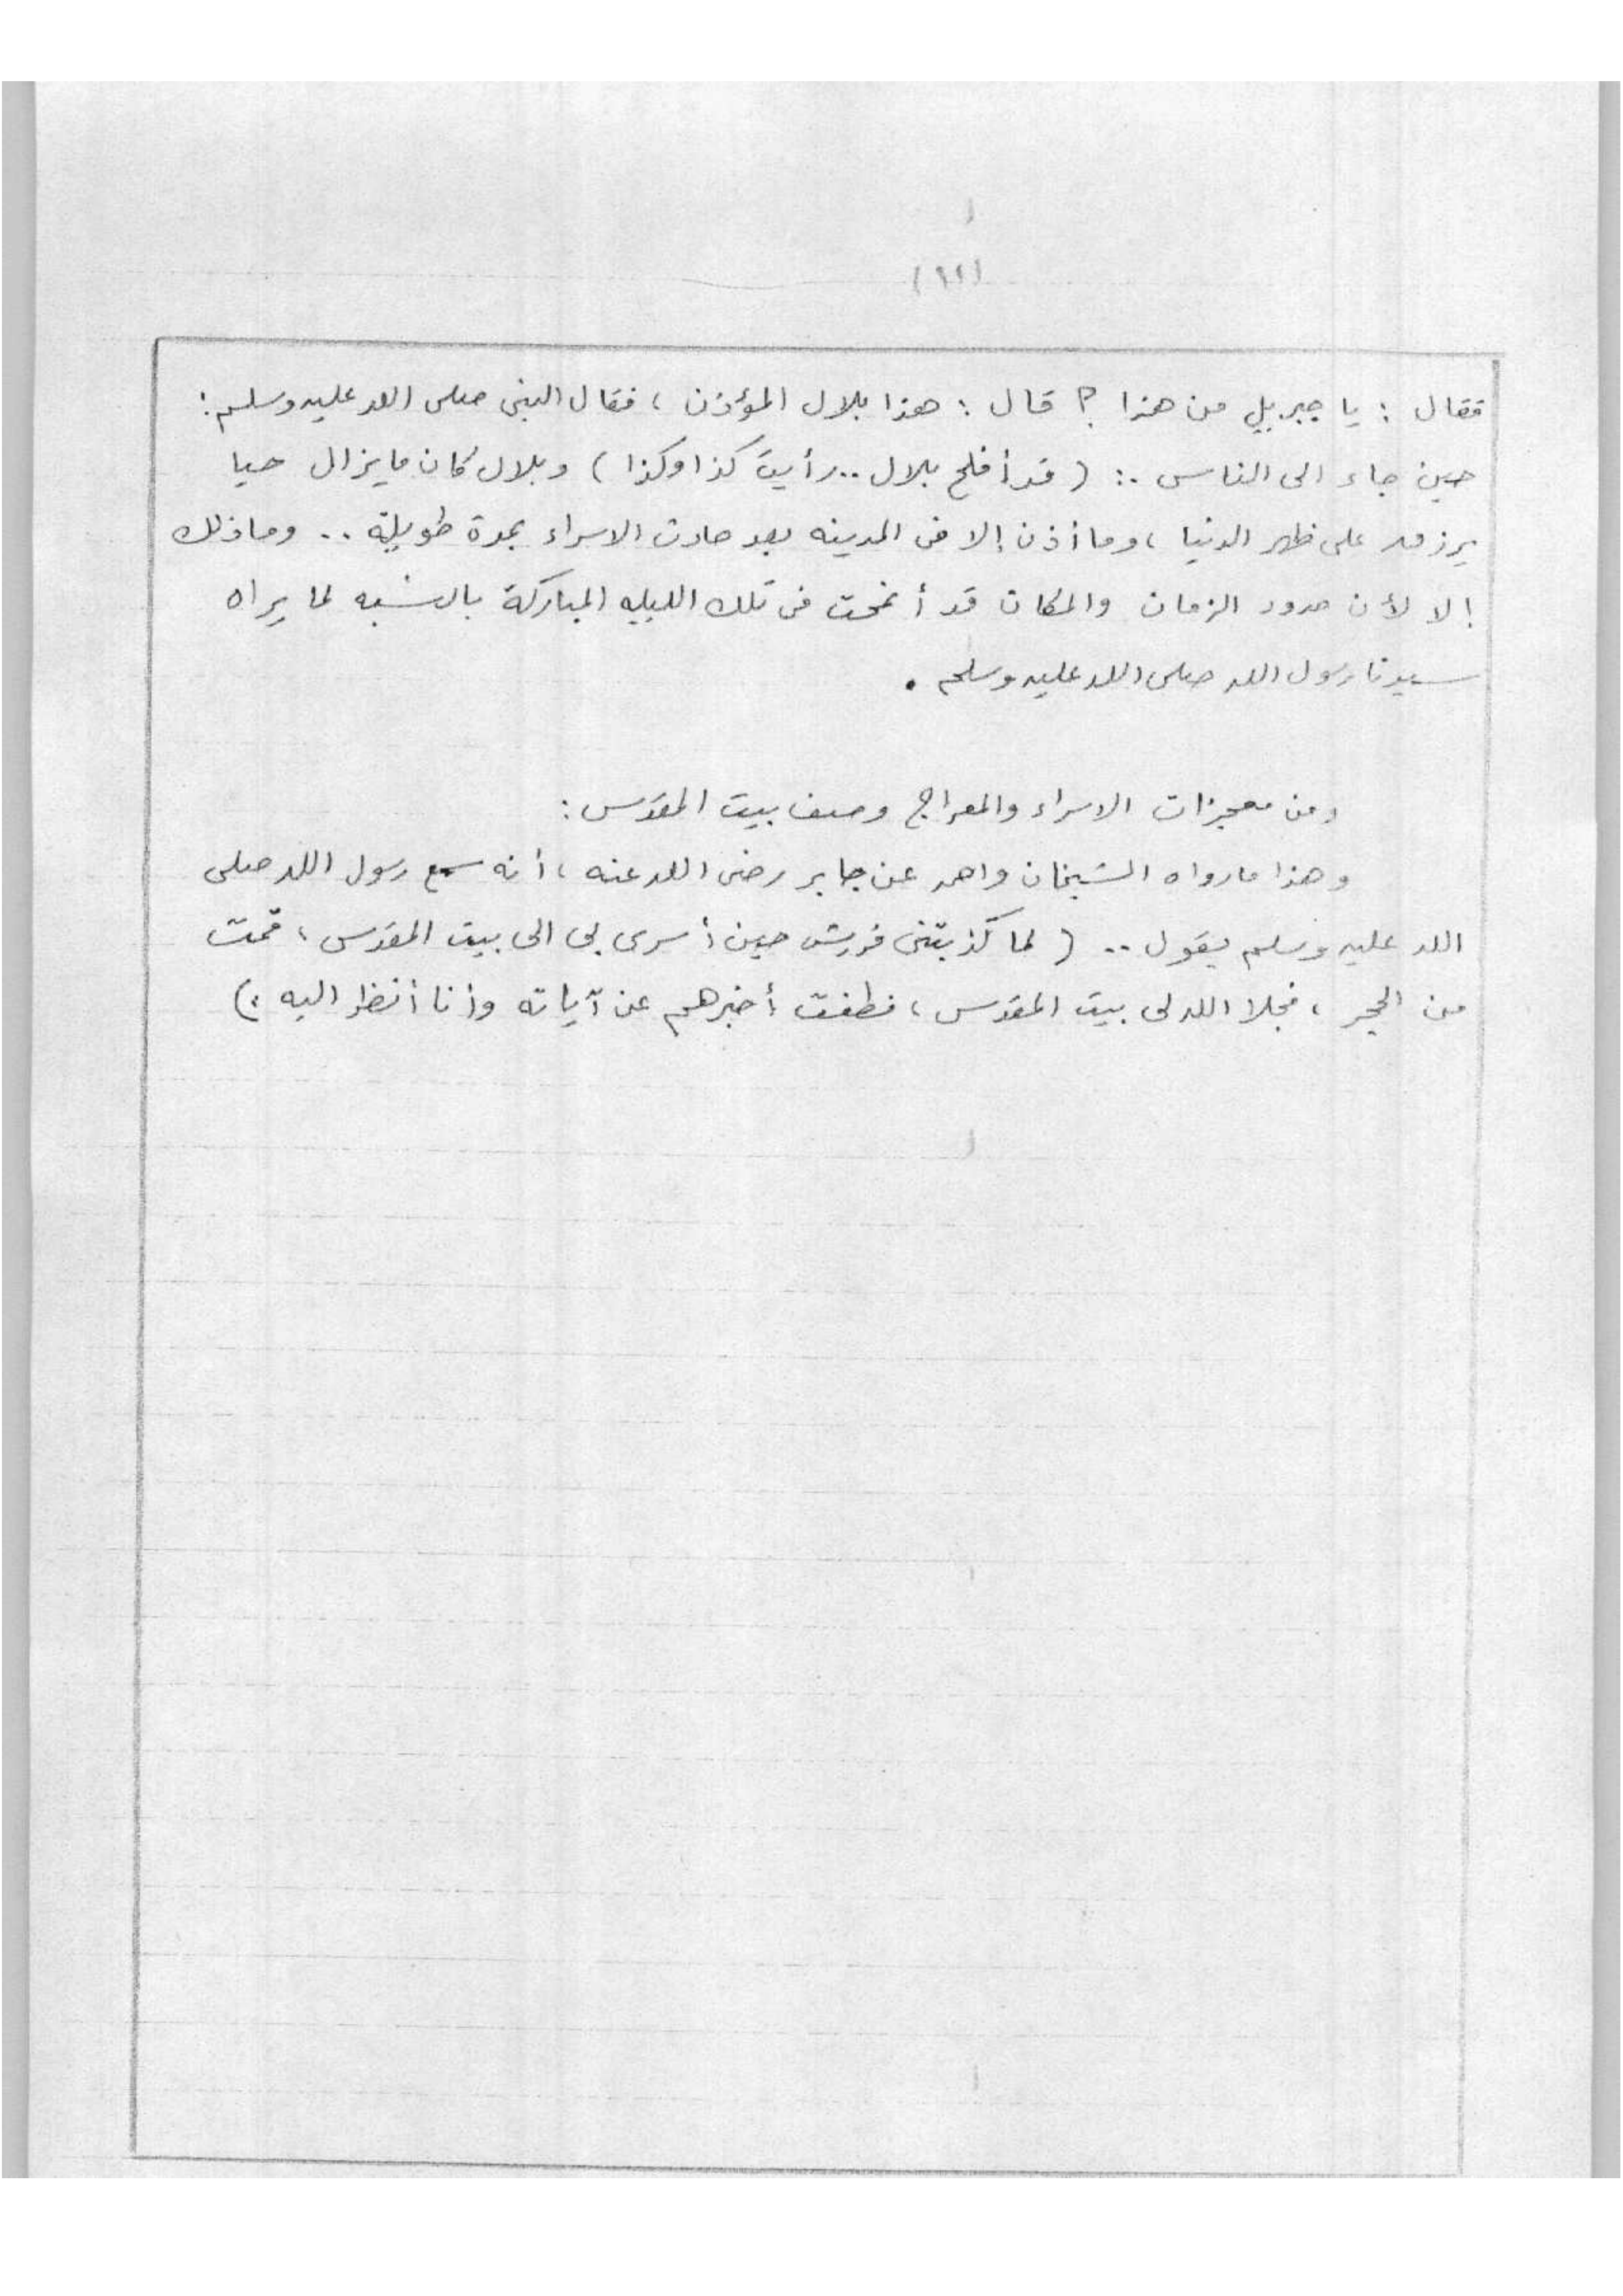 (١١)
فقال : يا جبريل من هذا ؟ قال : هذا بلال المؤذن ، فقال النبى صلى الله عليه وسلم :
حين جاء الى الناس .: ( قد أفلح بلال .. رأيت كذا وكذا ) وبلال كان مايزال حيا
يرزق على ظهر الدنيا ، وما أذن إلا فى المدينه بعد حادث الاسراء بمدة طويلة .. وماذلك
إلا لأن حدود الزمان والمكان قد أنمحت فى تلك الليله المباركة بالنسبه لما يراه
سيدنا رسول الله صلى الله عليه وسلم .
ومن معجزات الاسراء والمعراج وصف بيت المقدس :
وهذا مارواه الشيخان واحمد عن جابر رضى الله عنه ، أنه سمع رسول الله صلى
الله عليه وسلم يقول .. ( لما كذبتنى قريش حين أسرى بى الى بيت المقدس ، قمت
من الحجر ، فجلا الله لى بيت المقدس ، فطفت أخبرهم عن آياته وأنا أنظر اليه )